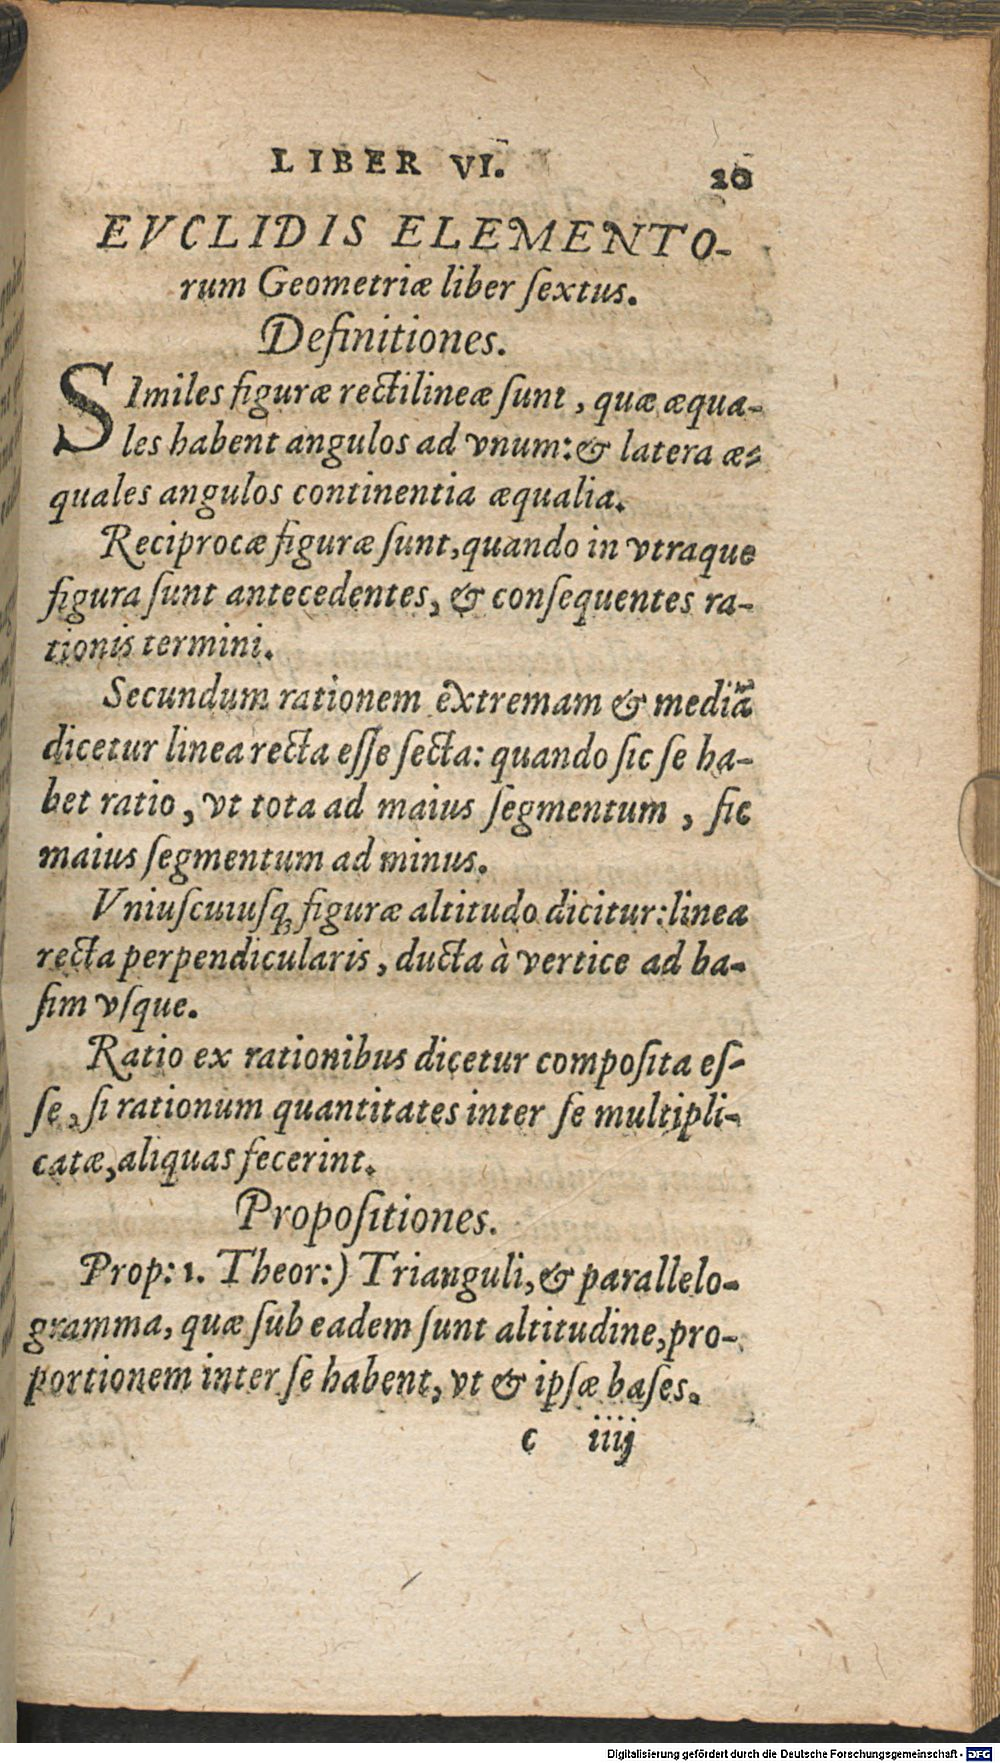 LIBER VI. 20
EVCLIDIS ELEMENTO-
rum Geometriæ liber ſextus.
Definitiones.
SImiles figuræ rectilineæ ſunt, quæ æqua-
les habent angulos ad vnum: & latera æ-
quales angulos continentia æqualia.
Reciprocæ figuræ ſunt, quando in vtraque
figura ſunt antecedentes, & conſequentes ra-
tionis termini.
Secundum rationem extremam & mediã
dicetur linea recta eſſe ſecta: quando ſic ſe ha-
bet ratio, vt tota ad maius ſegmentum, ſic
maius ſegmentum ad minus.
Vniuſcuiuſq; figuræ altitudo dicitur: linea
recta perpendicularis, ducta à vertice ad ba-
ſim vſque.
Ratio ex rationibus dicetur compoſita eſ-
ſe, ſi rationum quantitates inter ſe multipli-
catæ, aliquas fecerint.
Propoſitiones.
Prop: 1. Theor:) Trianguli, & parallelo-
gramma, quæ ſub eadem ſunt altitudine, pro-
portionem inter ſe habent, vt & ipſæ baſes.
c iiij
Digitalisierung gefördert durch die Deutsche Forschungsgemeinschaft - DFG